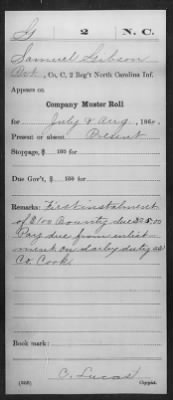 G 2 N. C.
Samuel Gibson
Pvt., Co. C, 2 Reg't North Carolina Inf.
Appears on
Company Muster Roll
for July & Aug, 186
Present or absent Present
Stoppage, $ 100 for
Due Gov't, $ 100 for
Remarks: First instalment
of $100 Bounty due $25.00
Pay due from enlist-
ment on daily duty as
Co. Cook
Book mark:
C. Lucas
(358) Copyist.